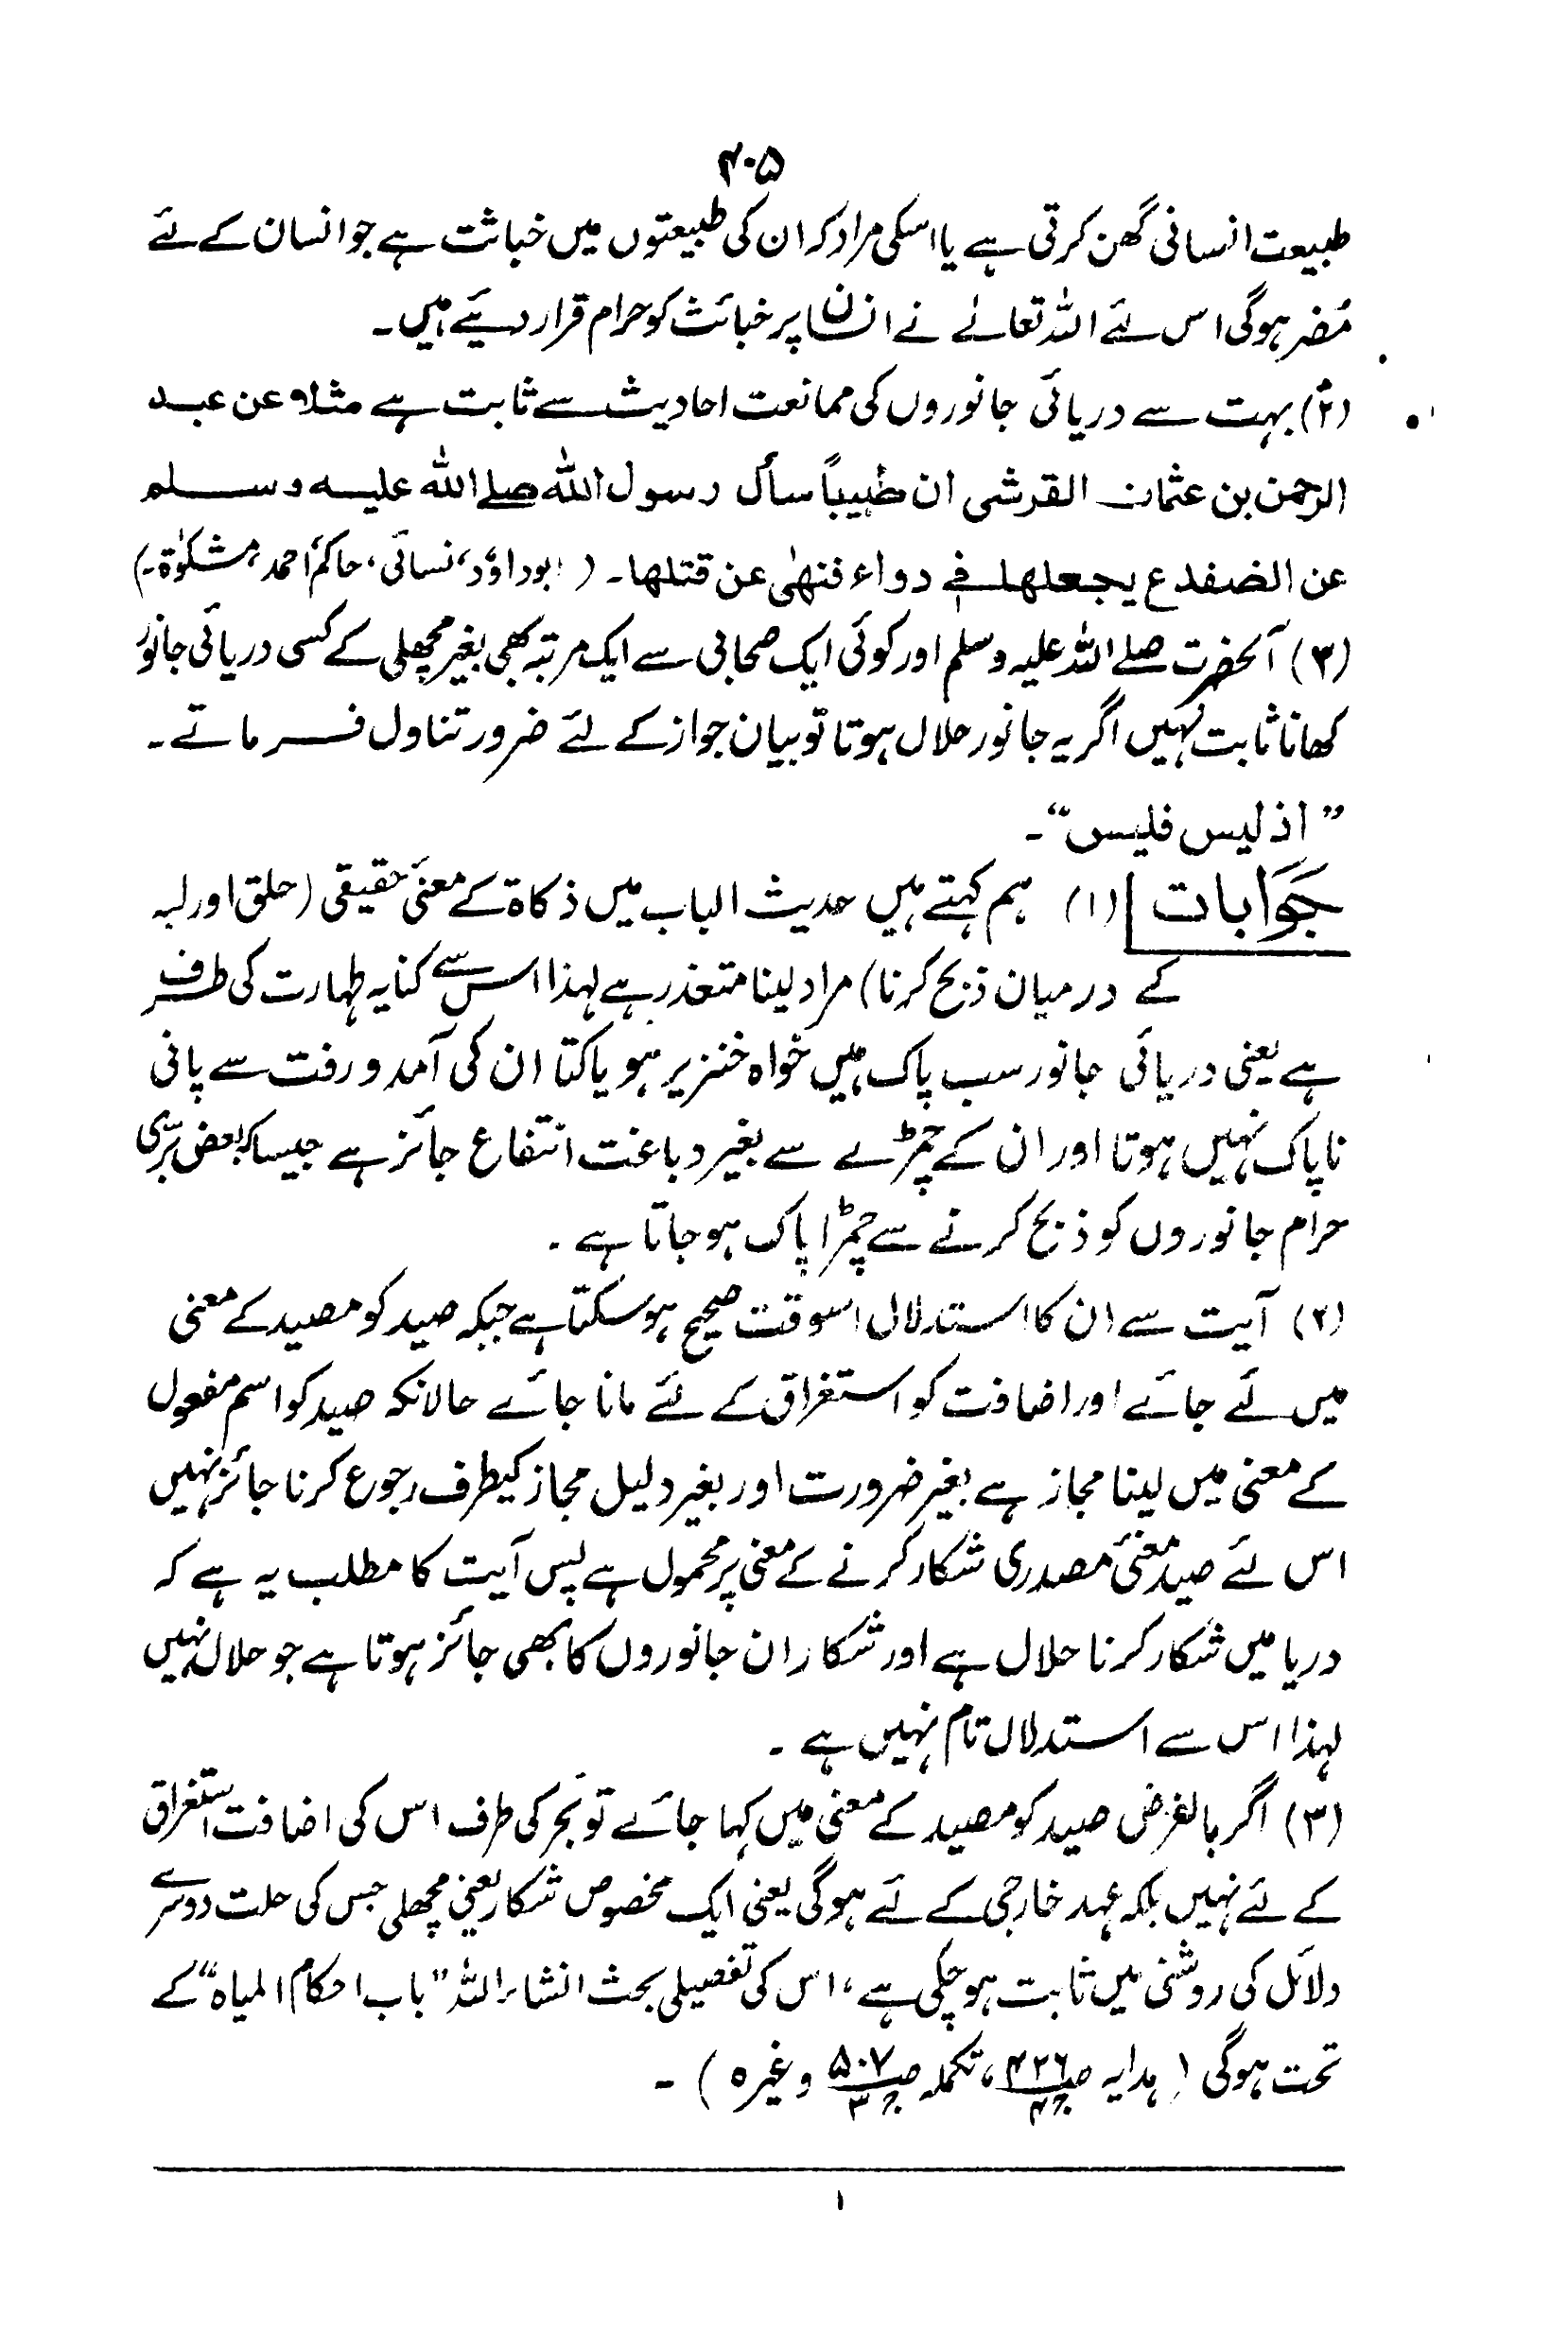 ۴۰۵
طبیعت انسانی گھن کرتی ہے یا اسکی مراد کہ ان کی طبیعتوں میں خباثت ہے جو انسان کے لئے
مُضر ہوگی اس لئے اللہ تعالےٰ نے انسان پر خبائث کو حرام قرار دیئے ہیں۔
(۲) بہت سے دریائی جانوروں کی ممانعت احادیث سے ثابت ہے مثلاً عن عبد
الرحمن بن عثمان القرشی ان طبیباً سأل رسول اللہ صلے اللہ علیہ وسلم
عن الضفدع یجعلها فی دواء فنهیٰ عن قتلها۔ (ابوداؤد، نسائی، حاکم، احمد، مشکوٰۃ۔)
(۳) آنحضرت صلے اللہ علیہ وسلم اور کوئی ایک صحابی سے ایک مرتبہ بھی بغیر مچھلی کے کسی دریائی جانور
کھانا ثابت نہیں اگر یہ جانور حلال ہوتا تو بیان جواز کے لئے ضرور تناول فرماتے۔
”اذ لیس فلیس“۔
جَوَابات (۱) ہم کہتے ہیں حدیث الباب میں ذکاۃ کے معنئ حقیقی (حلق اور لبہ
کے درمیان ذبح کرنا) مراد لینا متعذر ہے لہذا اس سے کنایہ طہارت کی طرف
ہے یعنی دریائی جانور سب پاک ہیں خواہ خنزیر ہو یا کتا ان کی آمد ورفت سے پانی
ناپاک نہیں ہوتا اور ان کے چمڑے سے بغیر دباغت انتفاع جائز ہے جیسا کہ بعض برّی
حرام جانوروں کو ذبح کرنے سے چمڑا پاک ہوجاتا ہے ۔
(۲) آیت سے ان کا استدلال اسوقت صحیح ہوسکتا ہے جبکہ صید کو مصید کے معنی
میں لئے جائے اور اضافت کو استغراق کے لئے مانا جائے حالانکہ صید کو اسم مفعول
کے معنی میں لینا مجاز ہے بغیر ضرورت اور بغیر دلیل مجاز کیطرف رجوع کرنا جائز نہیں
اس لئے صید معنئ مصدری شکار کرنے کے معنی پر محمول ہے پس آیت کا مطلب یہ ہے کہ
دریا میں شکار کرنا حلال ہے اور شکار ان جانوروں کا بھی جائز ہوتا ہے جو حلال نہیں
لہذا اس سے استدلال تام نہیں ہے ۔
(۳) اگر بالفرض صید کو مصید کے معنی میں کہا جائے تو بحر کی طرف اس کی اضافت استغراق
کے لئے نہیں بلکہ عہد خارجی کے لئے ہوگی یعنی ایک مخصوص شکار یعنی مچھلی جس کی حلت دوسرے
دلائل کی روشنی میں ثابت ہوچکی ہے، اس کی تفصیلی بحث انشاء اللہ ”باب احکام المیاہ“ کے
تحت ہوگی (ہدایہ صـ ۴۲۶ جـ ۴، تکملہ صـ ۵۰۷ جـ ۳ وغیرہ) ۔
۱